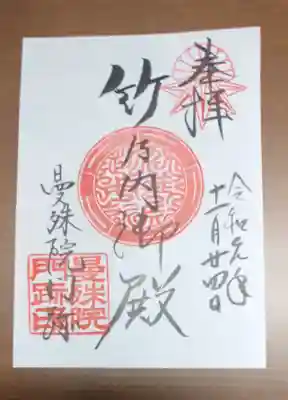 奉拝
令和元年
十一月廿四日
竹之内御殿
曼殊院門跡
曼殊院
門跡印